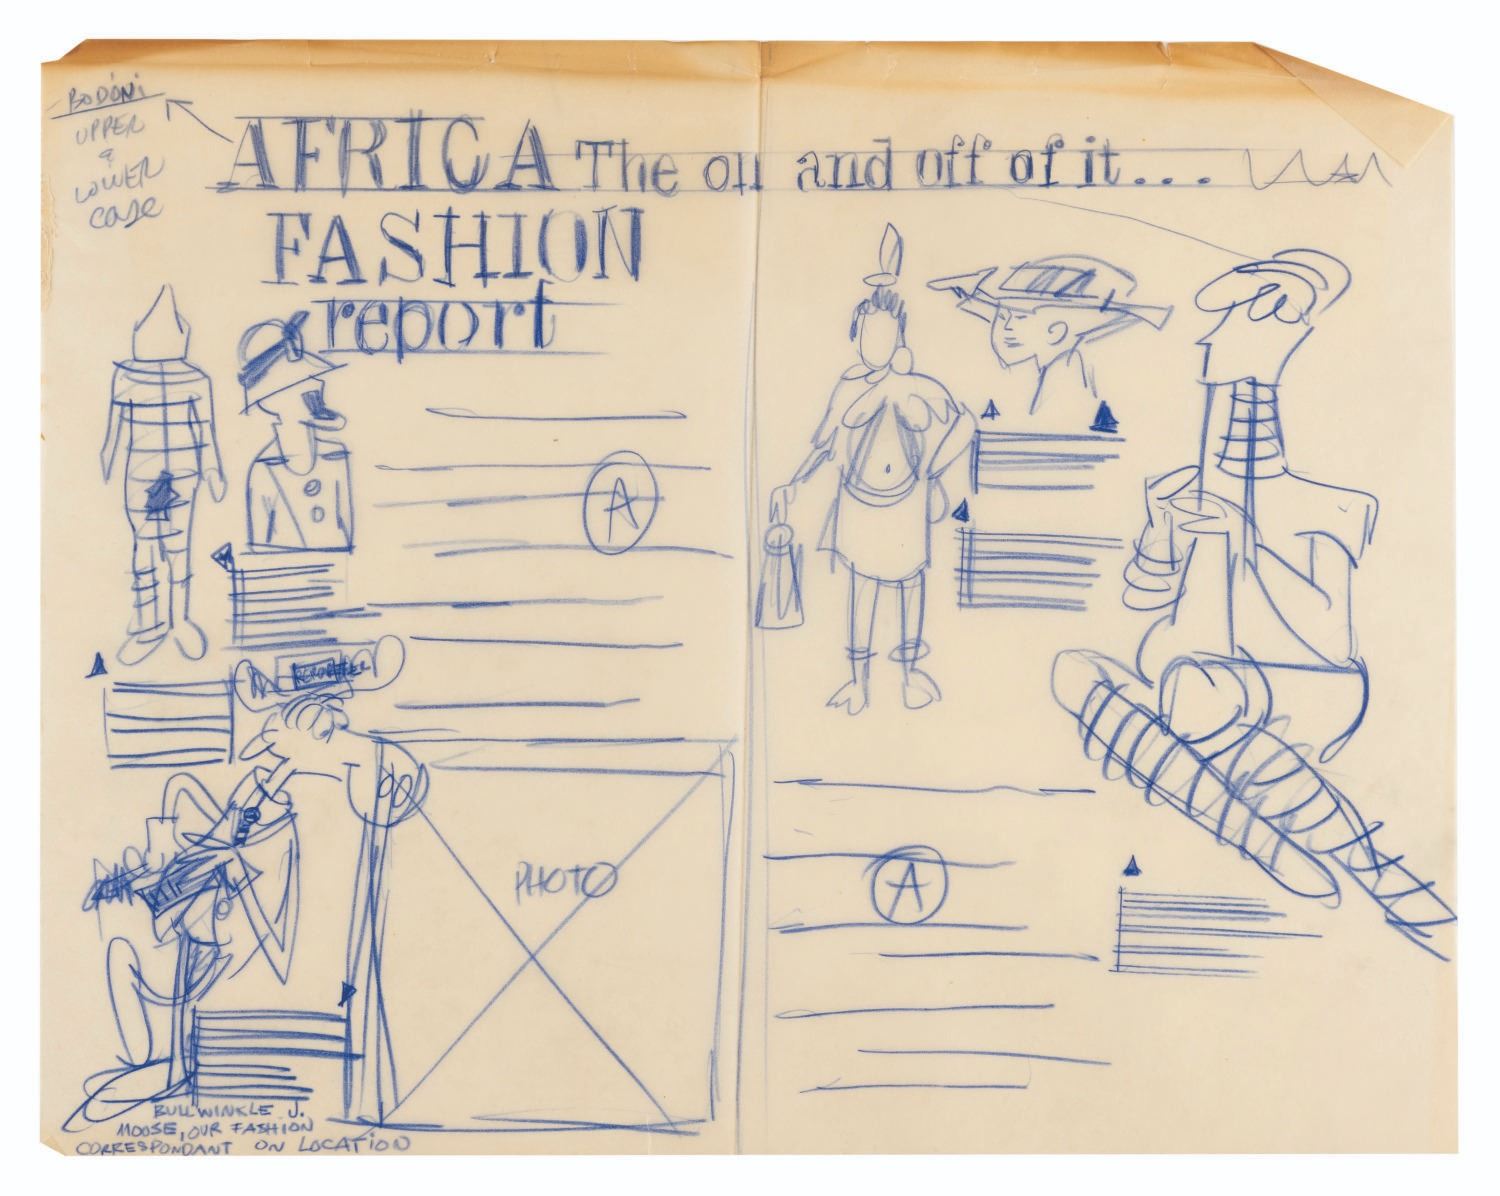 BODONi
UPPER
&
LOWER
CASe
AFRICA The on and off of it...
FASHION
report
A
REPORTER
PHOTO
A
BULLWINKLE J.
MOOSE, OUR FASHION
CORRESPONDANT ON LOCATiON